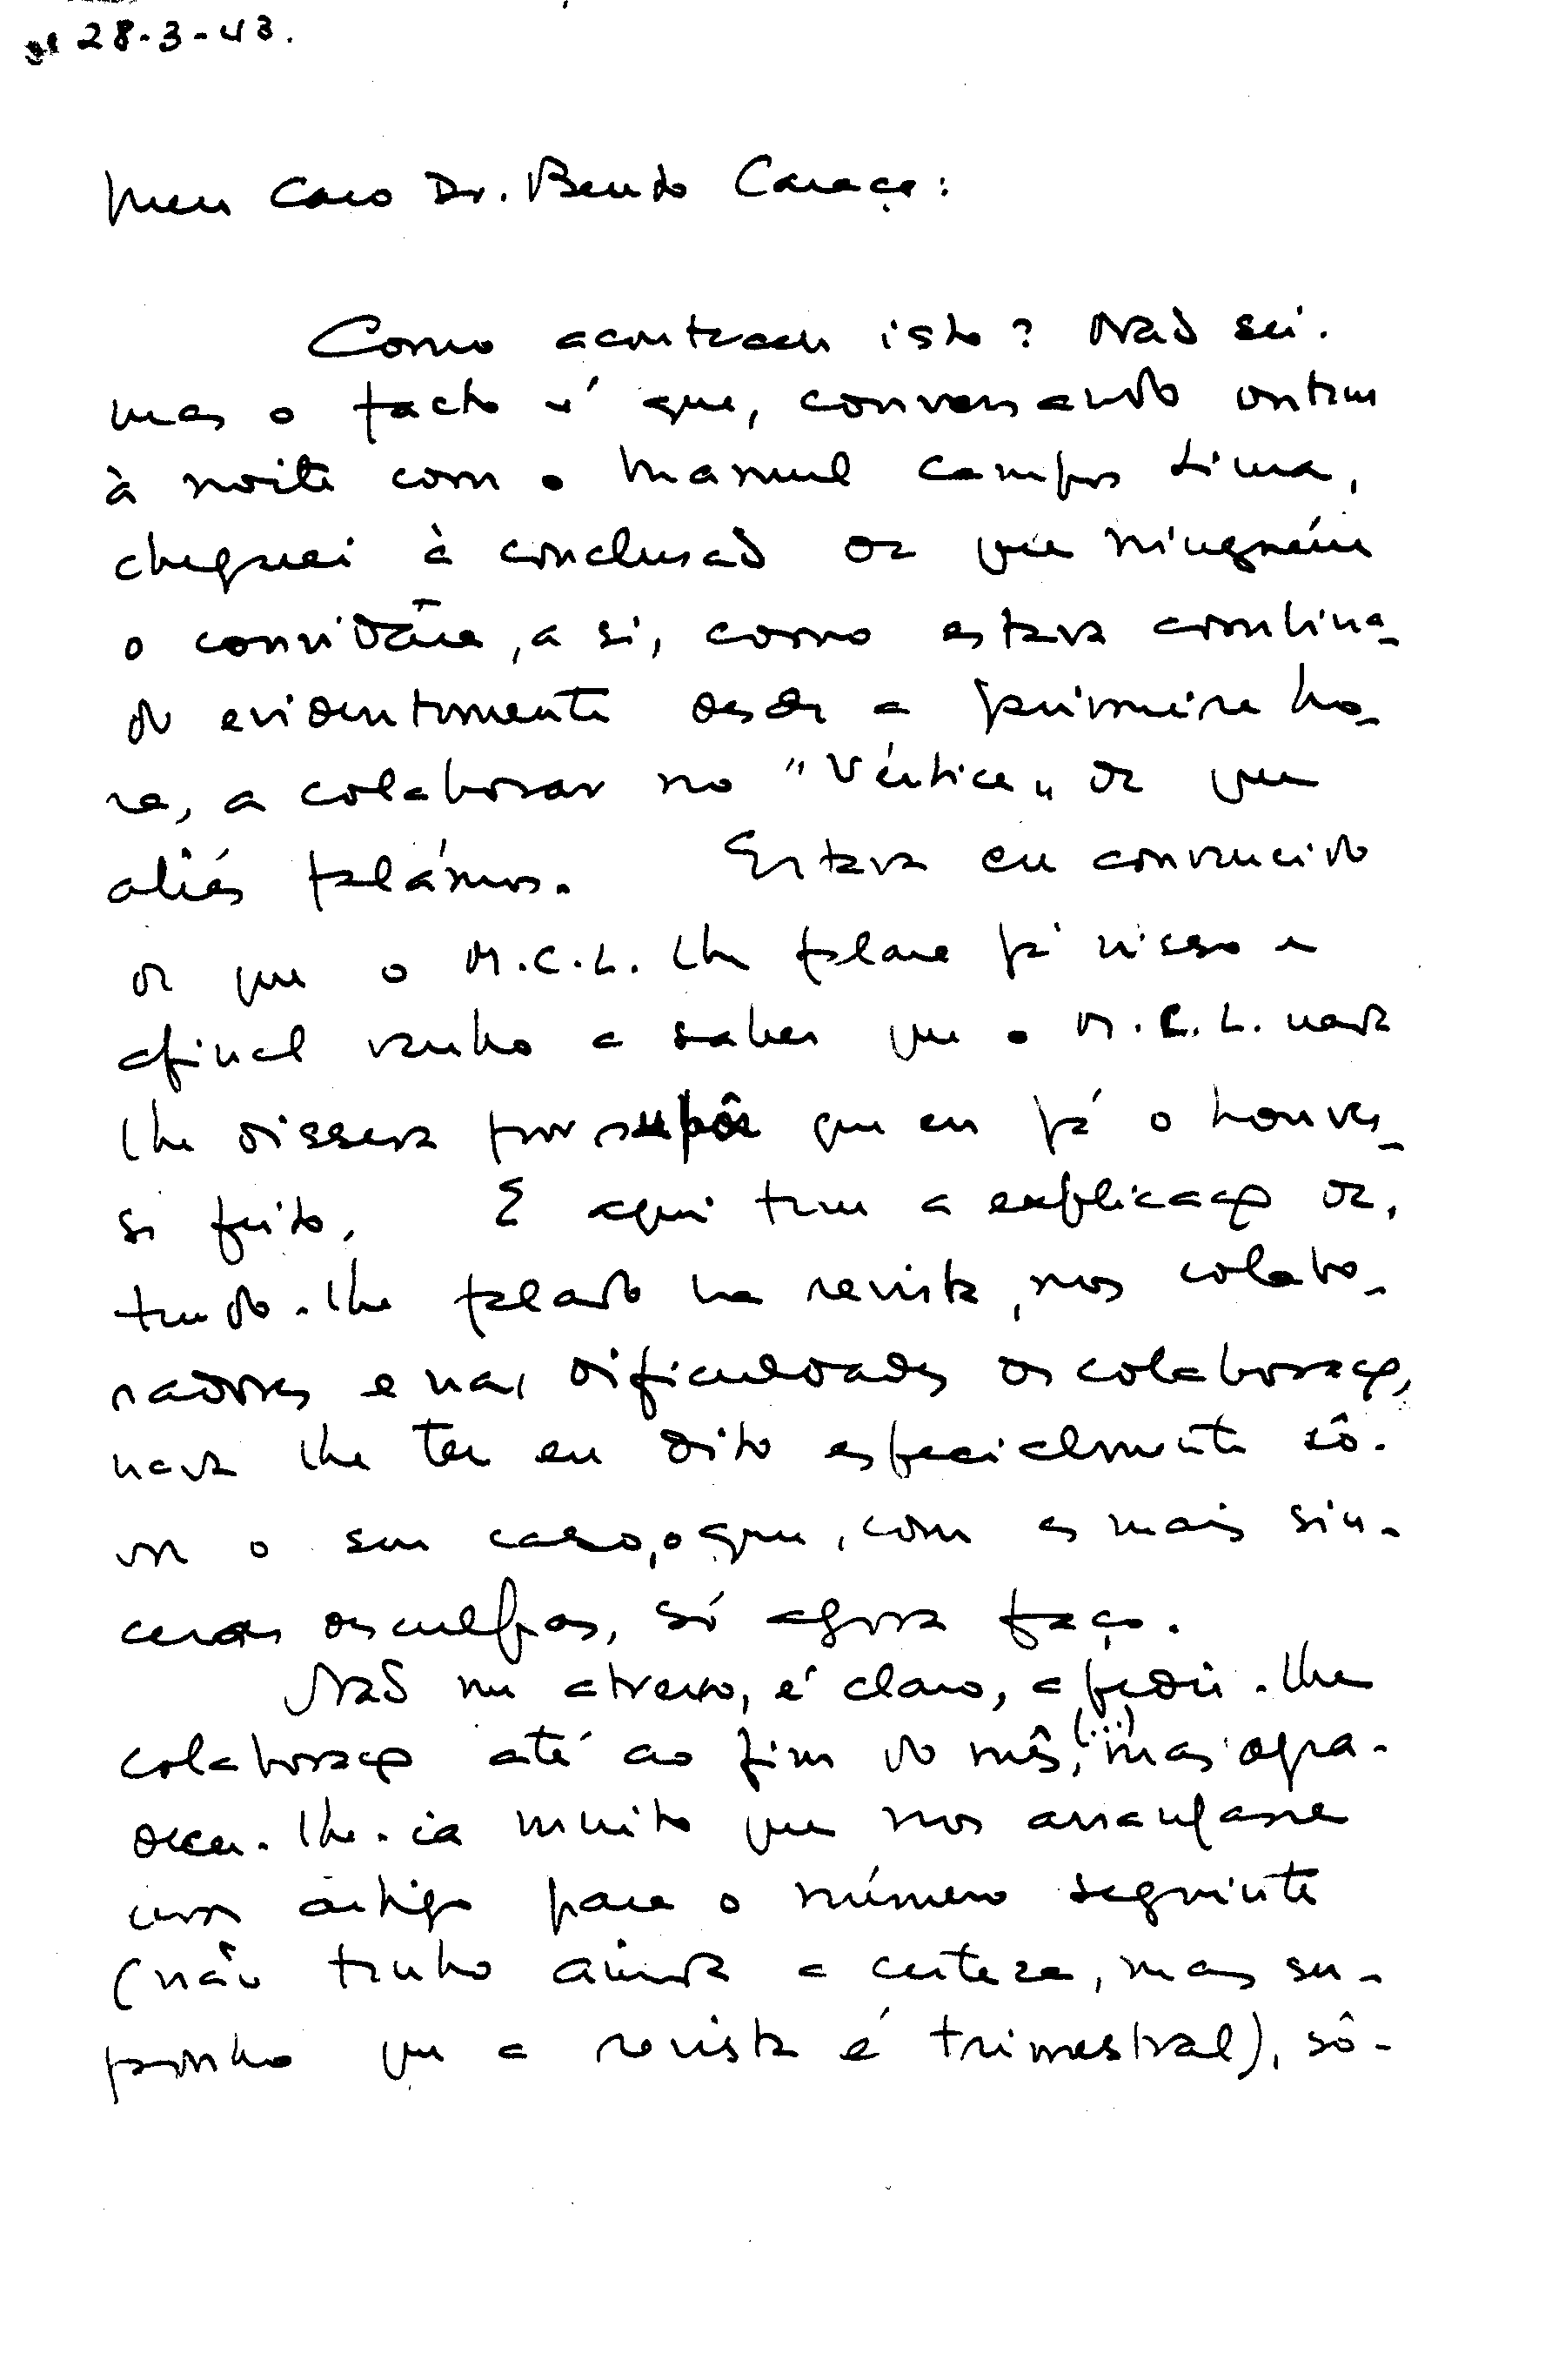 28-3-43.
Meu Caro Dr. Bento Caraça:
Como aconteceu isto? Não sei.
mas o facto é que, conversando ontem
à noite com o Manuel Campos Lima,
cheguei à conclusão de que ninguém
o convidára, a si, como estava combina-
do evidentemente desde a primeira ho-
ra, a colaborar no "Vértice" de que
aliás falámos. Estava eu convencido
de que o M.C.L. lhe falara já nisso e
afinal venho a saber que o M.C.L. nada
lhe dissera por supôr que eu já o houves-
se feito. E aqui tem a explicação de,
tendo-lhe falado na revista, nos colabo-
radores e nas dificuldades de colaboração,
nada lhe ter eu dito especialmente sô-
bre o seu caso, o que, com as mais sin-
ceras desculpas, só agora faço.
Não me atrevo, é claro, a pedir-lhe
colaboração até ao fim do mês, (...) mas agra-
decer-lhe-ia muito que nos arranjasse
um artigo para o número seguinte
(não tenho ainda a certeza, mas su-
ponho que a revista é trimestral), sô-